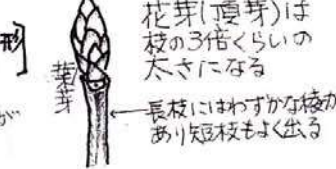 形
花芽(頂芽)は
枝の3倍くらいの
太さになる
葉芽
が
長枝にはわずかな稜が
あり短枝もよく出る